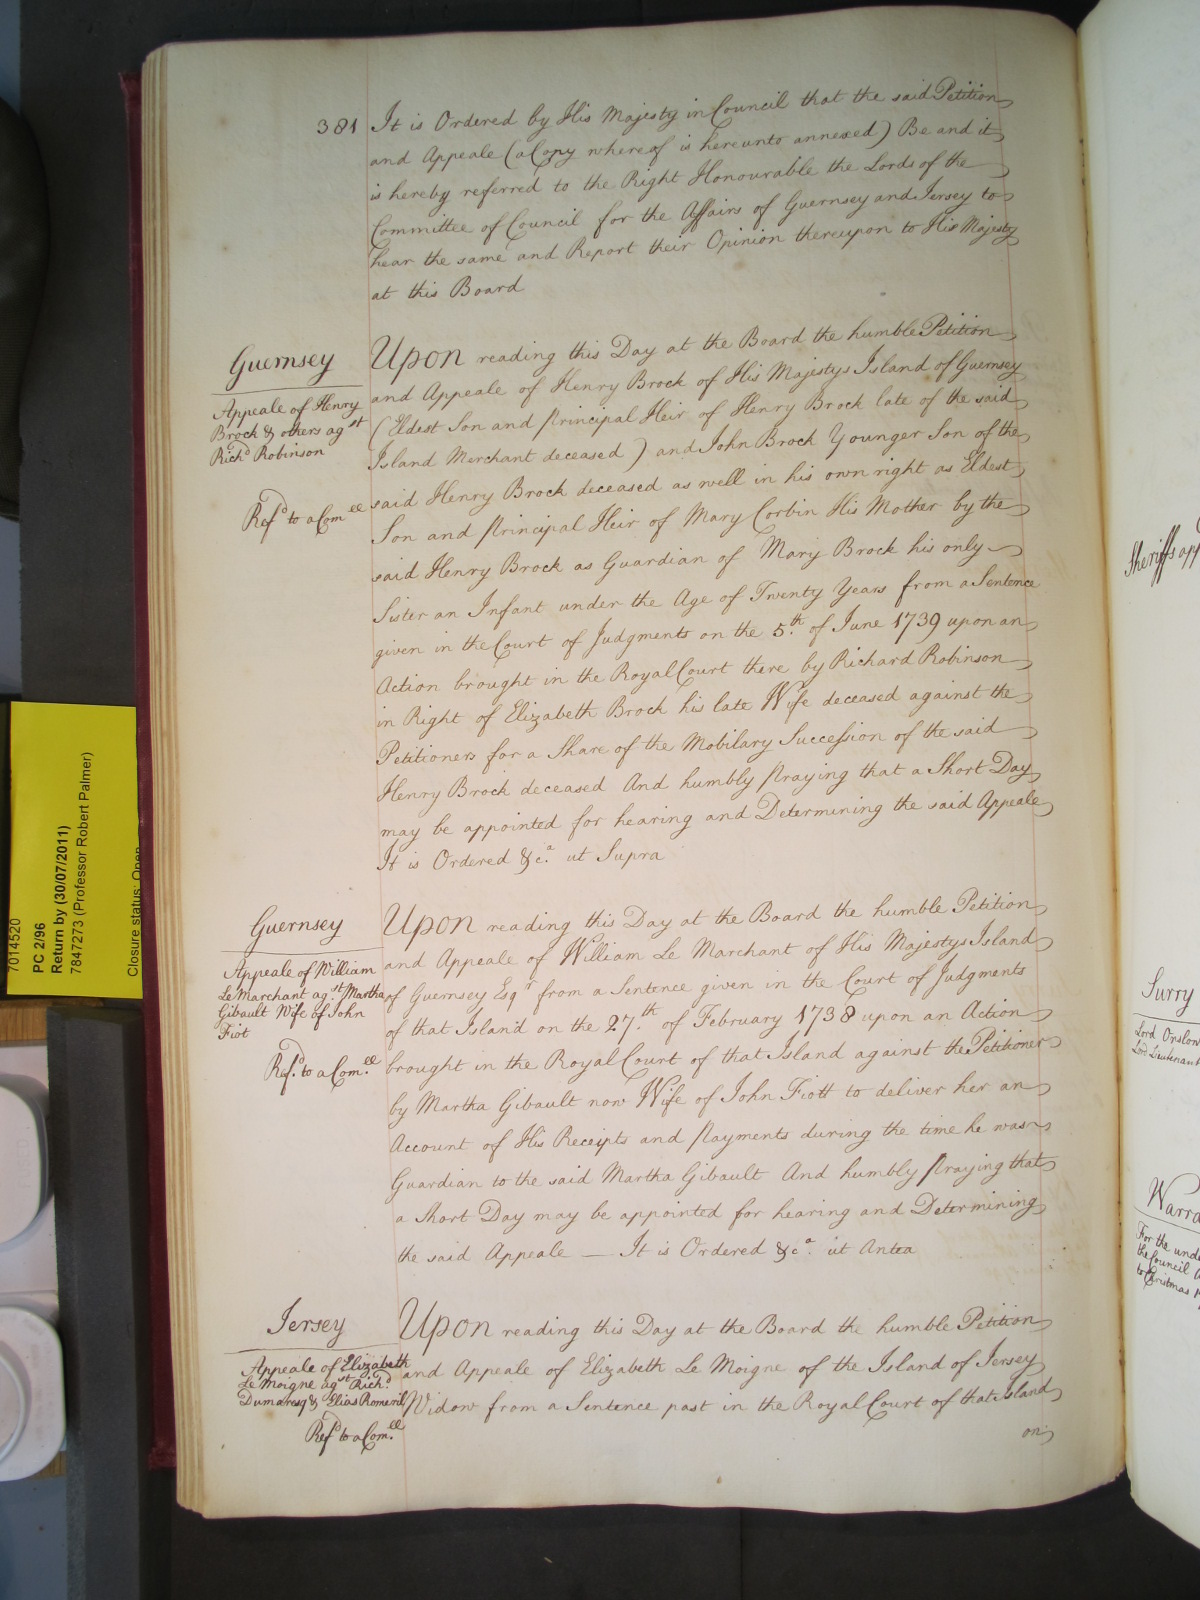 381
It is Ordered by His Majesty in Council that the said Petition
and Appeale (a Copy whereof is hereunto annexed) Be and it
is hereby referred to the Right Honourable the Lords of the
Committee of Council for the Affairs of Guernsey and Jersey to
hear the same and Report their Opinion thereupon to His Majesty
at this Board
Guernsey
Appeale of Henry
Brock & others agst
Richd Robinson
Refd to a Comee
Upon reading this Day at the Board the humble Petition
and Appeale of Henry Brock of His Majestys Island of Guernsey
(Eldest Son and Principal Heir of Henry Brock late of the said
Island Merchant deceased) and John Brock Younger Son of the
said Henry Brock deceased as well in his own right as Eldest
Son and Principal Heir of Mary Corbin His Mother by the
said Henry Brock as Guardian of Mary Brock his only
Sister an Infant under the Age of Twenty Years from a Sentence
given in the Court of Judgments on the 5.th of June 1739 upon an
Action brought in the Royal Court there by Richard Robinson
in Right of Elizabeth Brock his late Wife deceased against the
Petitioners for a Share of the Mobilary Succession of the said
Henry Brock deceased And humbly Praying that a Short Day
may be appointed for hearing and Determining the said Appeale
It is Ordered &c.a ut Supra
Guernsey
Appeale of William
Le Marchant ag.st Martha
Gibault Wife of John
Fiot
Ref.d to a Com.ee
Upon reading this Day at the Board the humble Petition
and Appeale of William Le Marchant of His Majestys Island
of Guernsey Esqr from a Sentence given in the Court of Judgments
of that Island on the 27.th of February 1738 upon an Action
brought in the Royal Court of that Island against the Petitioner
by Martha Gibault now Wife of John Fiott to deliver her an
Account of His Receipts and Payments during the time he was
Guardian to the said Martha Gibault And humbly Praying that
a Short Day may be appointed for hearing and Determining
the said Appeale — It is Ordered &ca. ut Antea
Jersey
Appeale of Elizabeth
Le Moigne agst Richd.
Dumaresq & Elias Romeril
Refd to a Com.ee
Upon reading this Day at the Board the humble Petition
and Appeale of Elizabeth Le Moigne of the Island of Jersey
Widow from a Sentence past in the Royal Court of that Island
on
7014520
PC 2/96
Return by (30/07/2011)
7847273 (Professor Robert Palmer)
Closure status: Open
Sheriffs app
Surry
Lord Onslow
Lord Lieutenant
Warra
For the unde
the Council
to Christmas